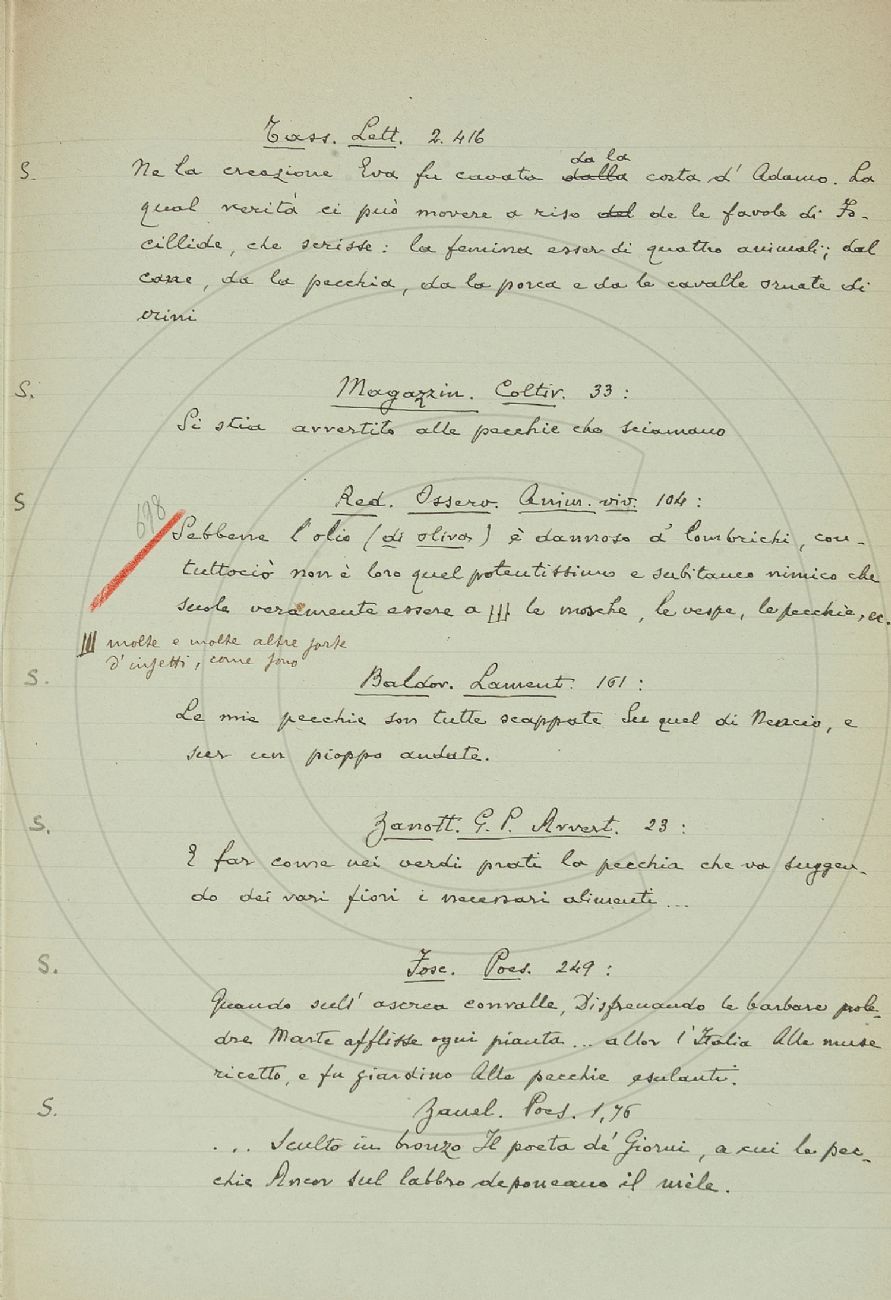 Tass. Lett. 2. 416
da la
S. Ne la creazione Eva fu cavata dalla costa d' Adamo. La
qual verità ci può movere a riso del de le favole di Fo-
cillide, che scrisse: la femina esser di quattro animali; dal
cane, da la pecchia, da la porca e da le cavalle ornate di
crini
S. Magazzin. Coltiv. 33:
Si stia avvertito alle pecchie che sciamano
S Red. Osserv. Anim. viv. 104:
698
Sebbene l'olio (di oliva) è dannoso a' lombrichi, con-
tuttociò non è loro quel potentissimo e subitaneo nimico che
suole veramente essere a le mosche, le vespe, le pecchie, ec.
molte e molte altre sorte
d'insetti, come sono
S. Baldov. Lament. 161:
Le mie pecchie son tutte scappate Su quel di Nencio, e
sur un pioppo andate.
S. Zanott. G. P. Avvert. 23:
E far come nei verdi prati la pecchia che va suggen-
do dei vari fiori i necessari alimenti ...
S. Fosc. Poes. 249:
Quando sull' ascrea convalle, Disfrenando le barbare pole-
dre Marte afflisse ogni pianta ... allor l'Italia Alle muse
ricetto, e fu giardino Alle pecchie esulanti.
S. Zanel. Poes. 1,76
... Sculto in bronzo Il poeta de' Giorni, a cui le pec-
chie Ancor sul labbro deponeano il mèle.